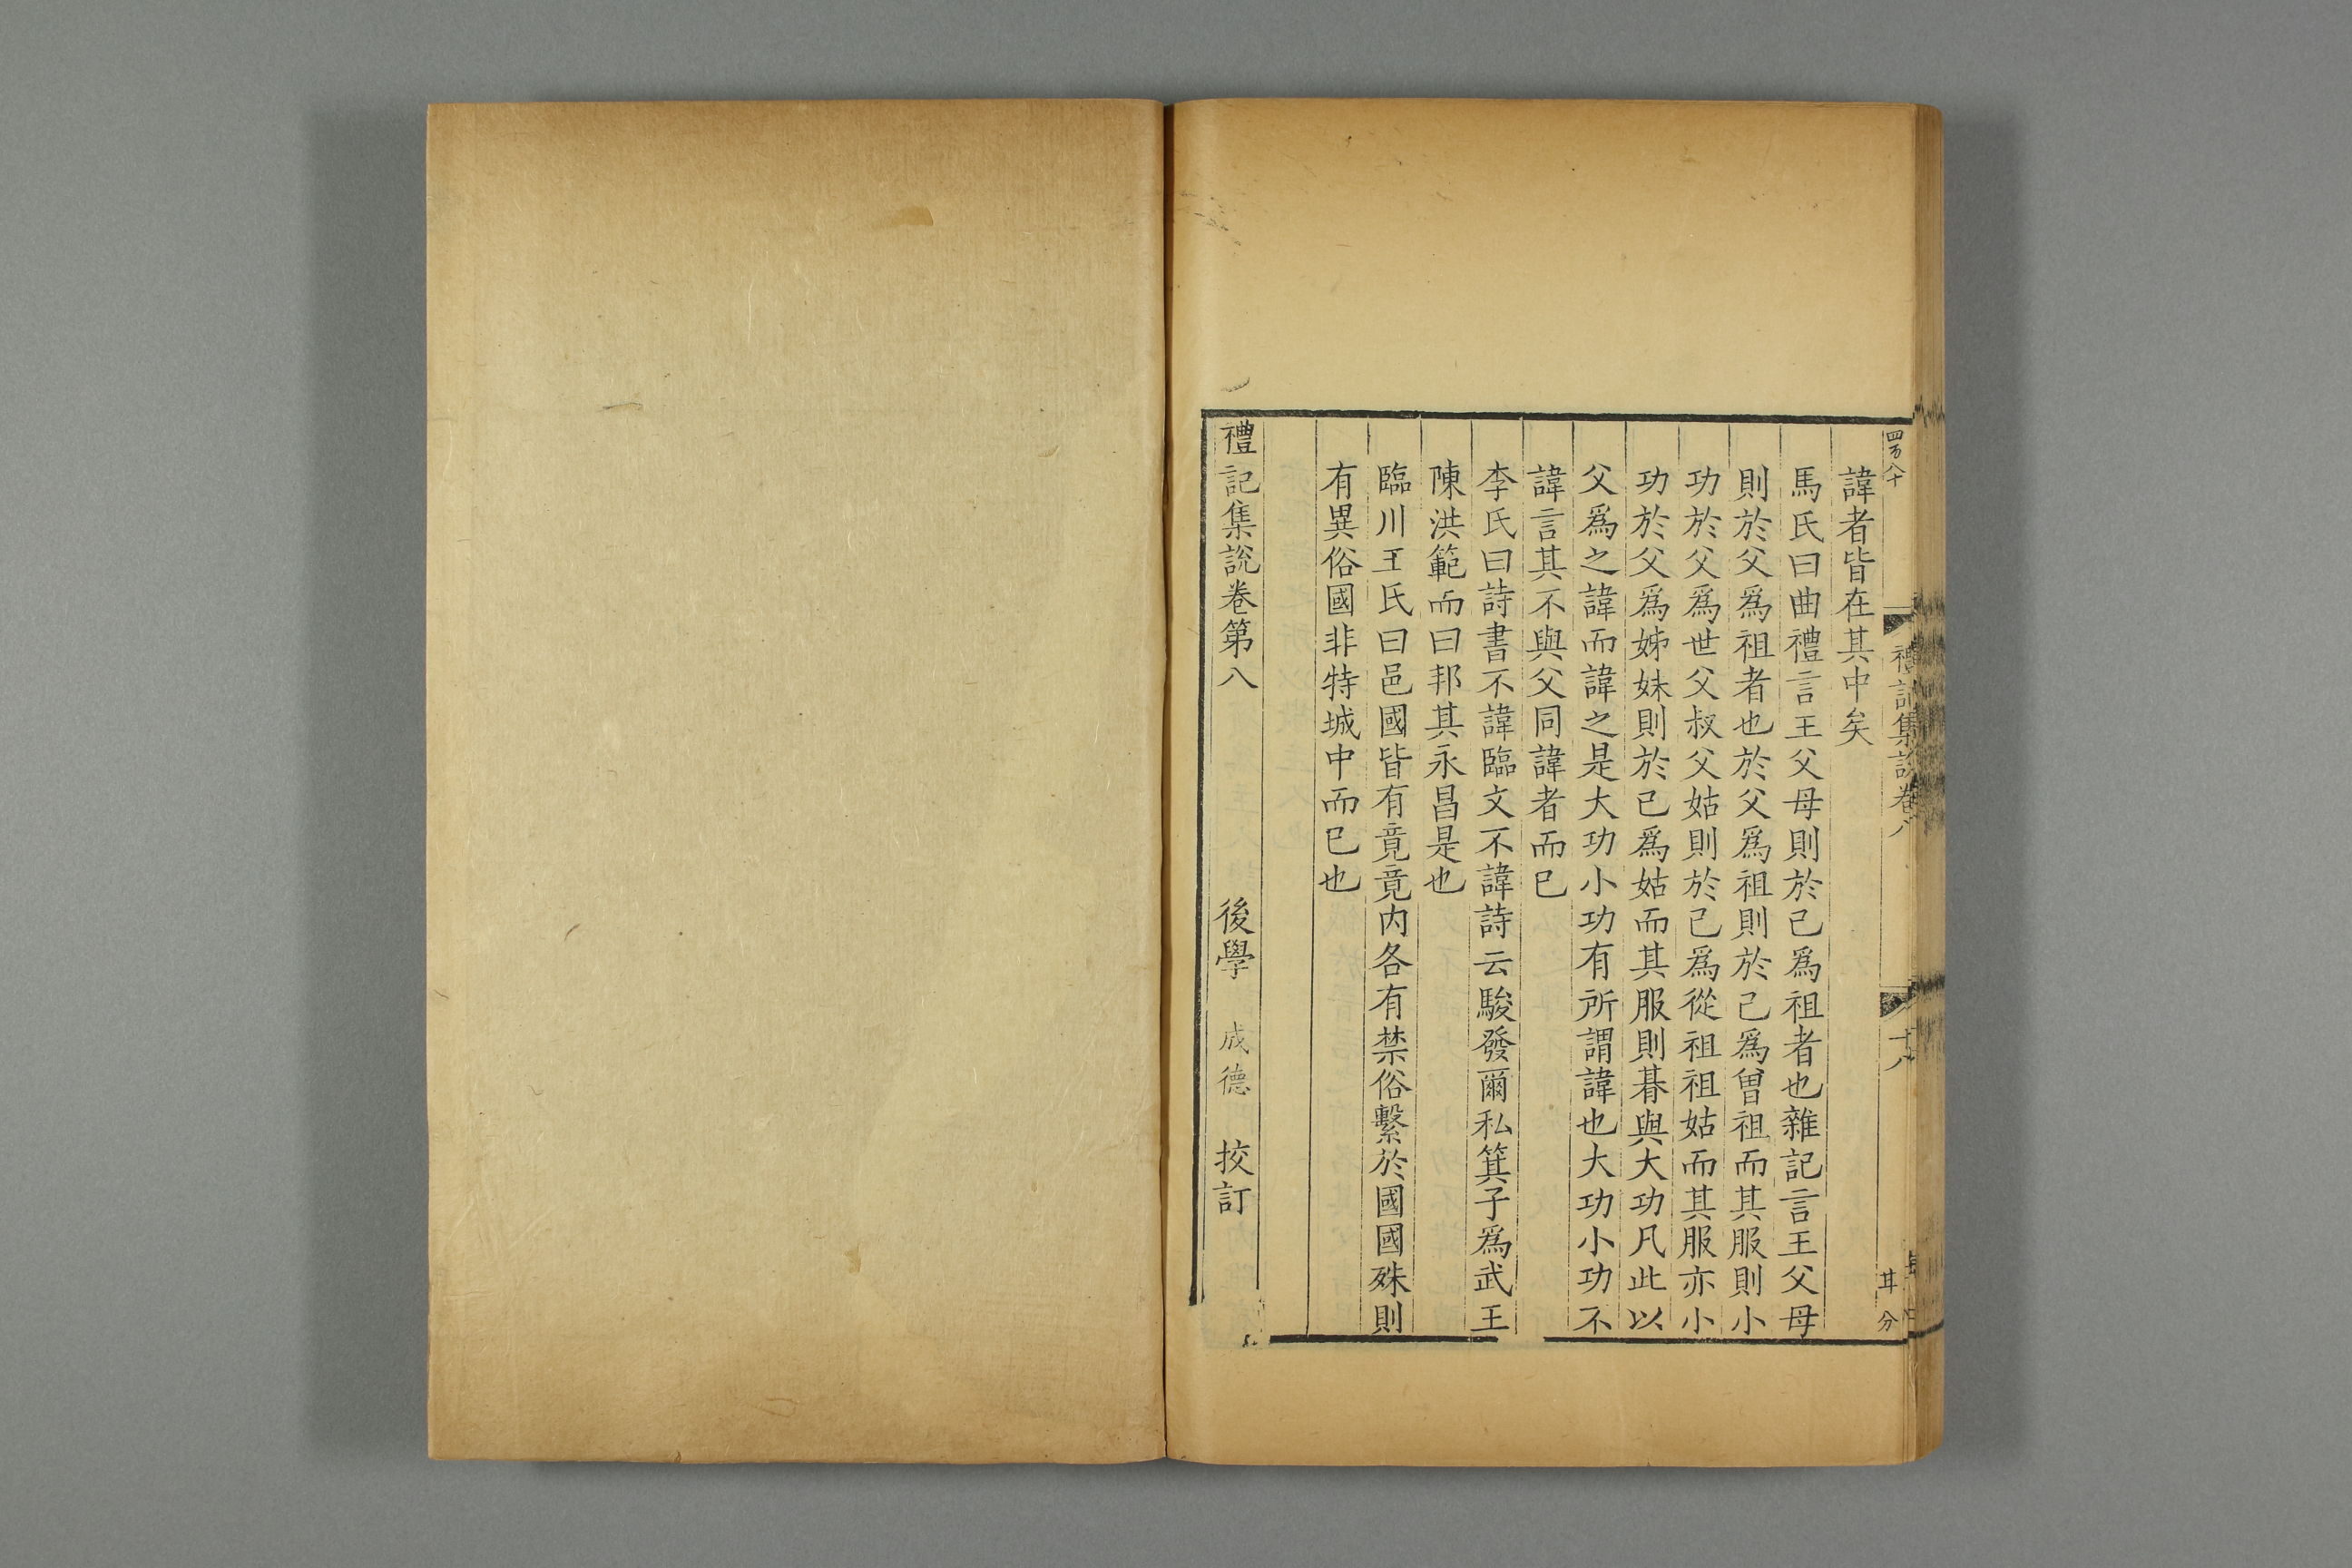 四百八十
禮記集說卷八
十八
諱者皆在其中矣
馬氏曰曲禮言王父母則於己爲祖者也雜記言王父母
則於父爲祖者也於父爲祖則於己爲曾祖而其服則小
功於父爲世父叔父姑則於己爲從祖祖姑而其服亦小
功於父爲姊妹則於己爲姑而其服則朞與大功凡此以
父爲之諱而諱之是大功小功有所謂諱也大功小功不
諱言其不與父同諱者而已
李氏曰詩書不諱臨文不諱詩云駿發爾私箕子爲武王
陳洪範而曰邦其永昌是也
臨川王氏曰邑國皆有竟竟內各有禁俗繫於國國殊則
有異俗國非特城中而已也
禮記集說卷第八 後學 成德 挍訂